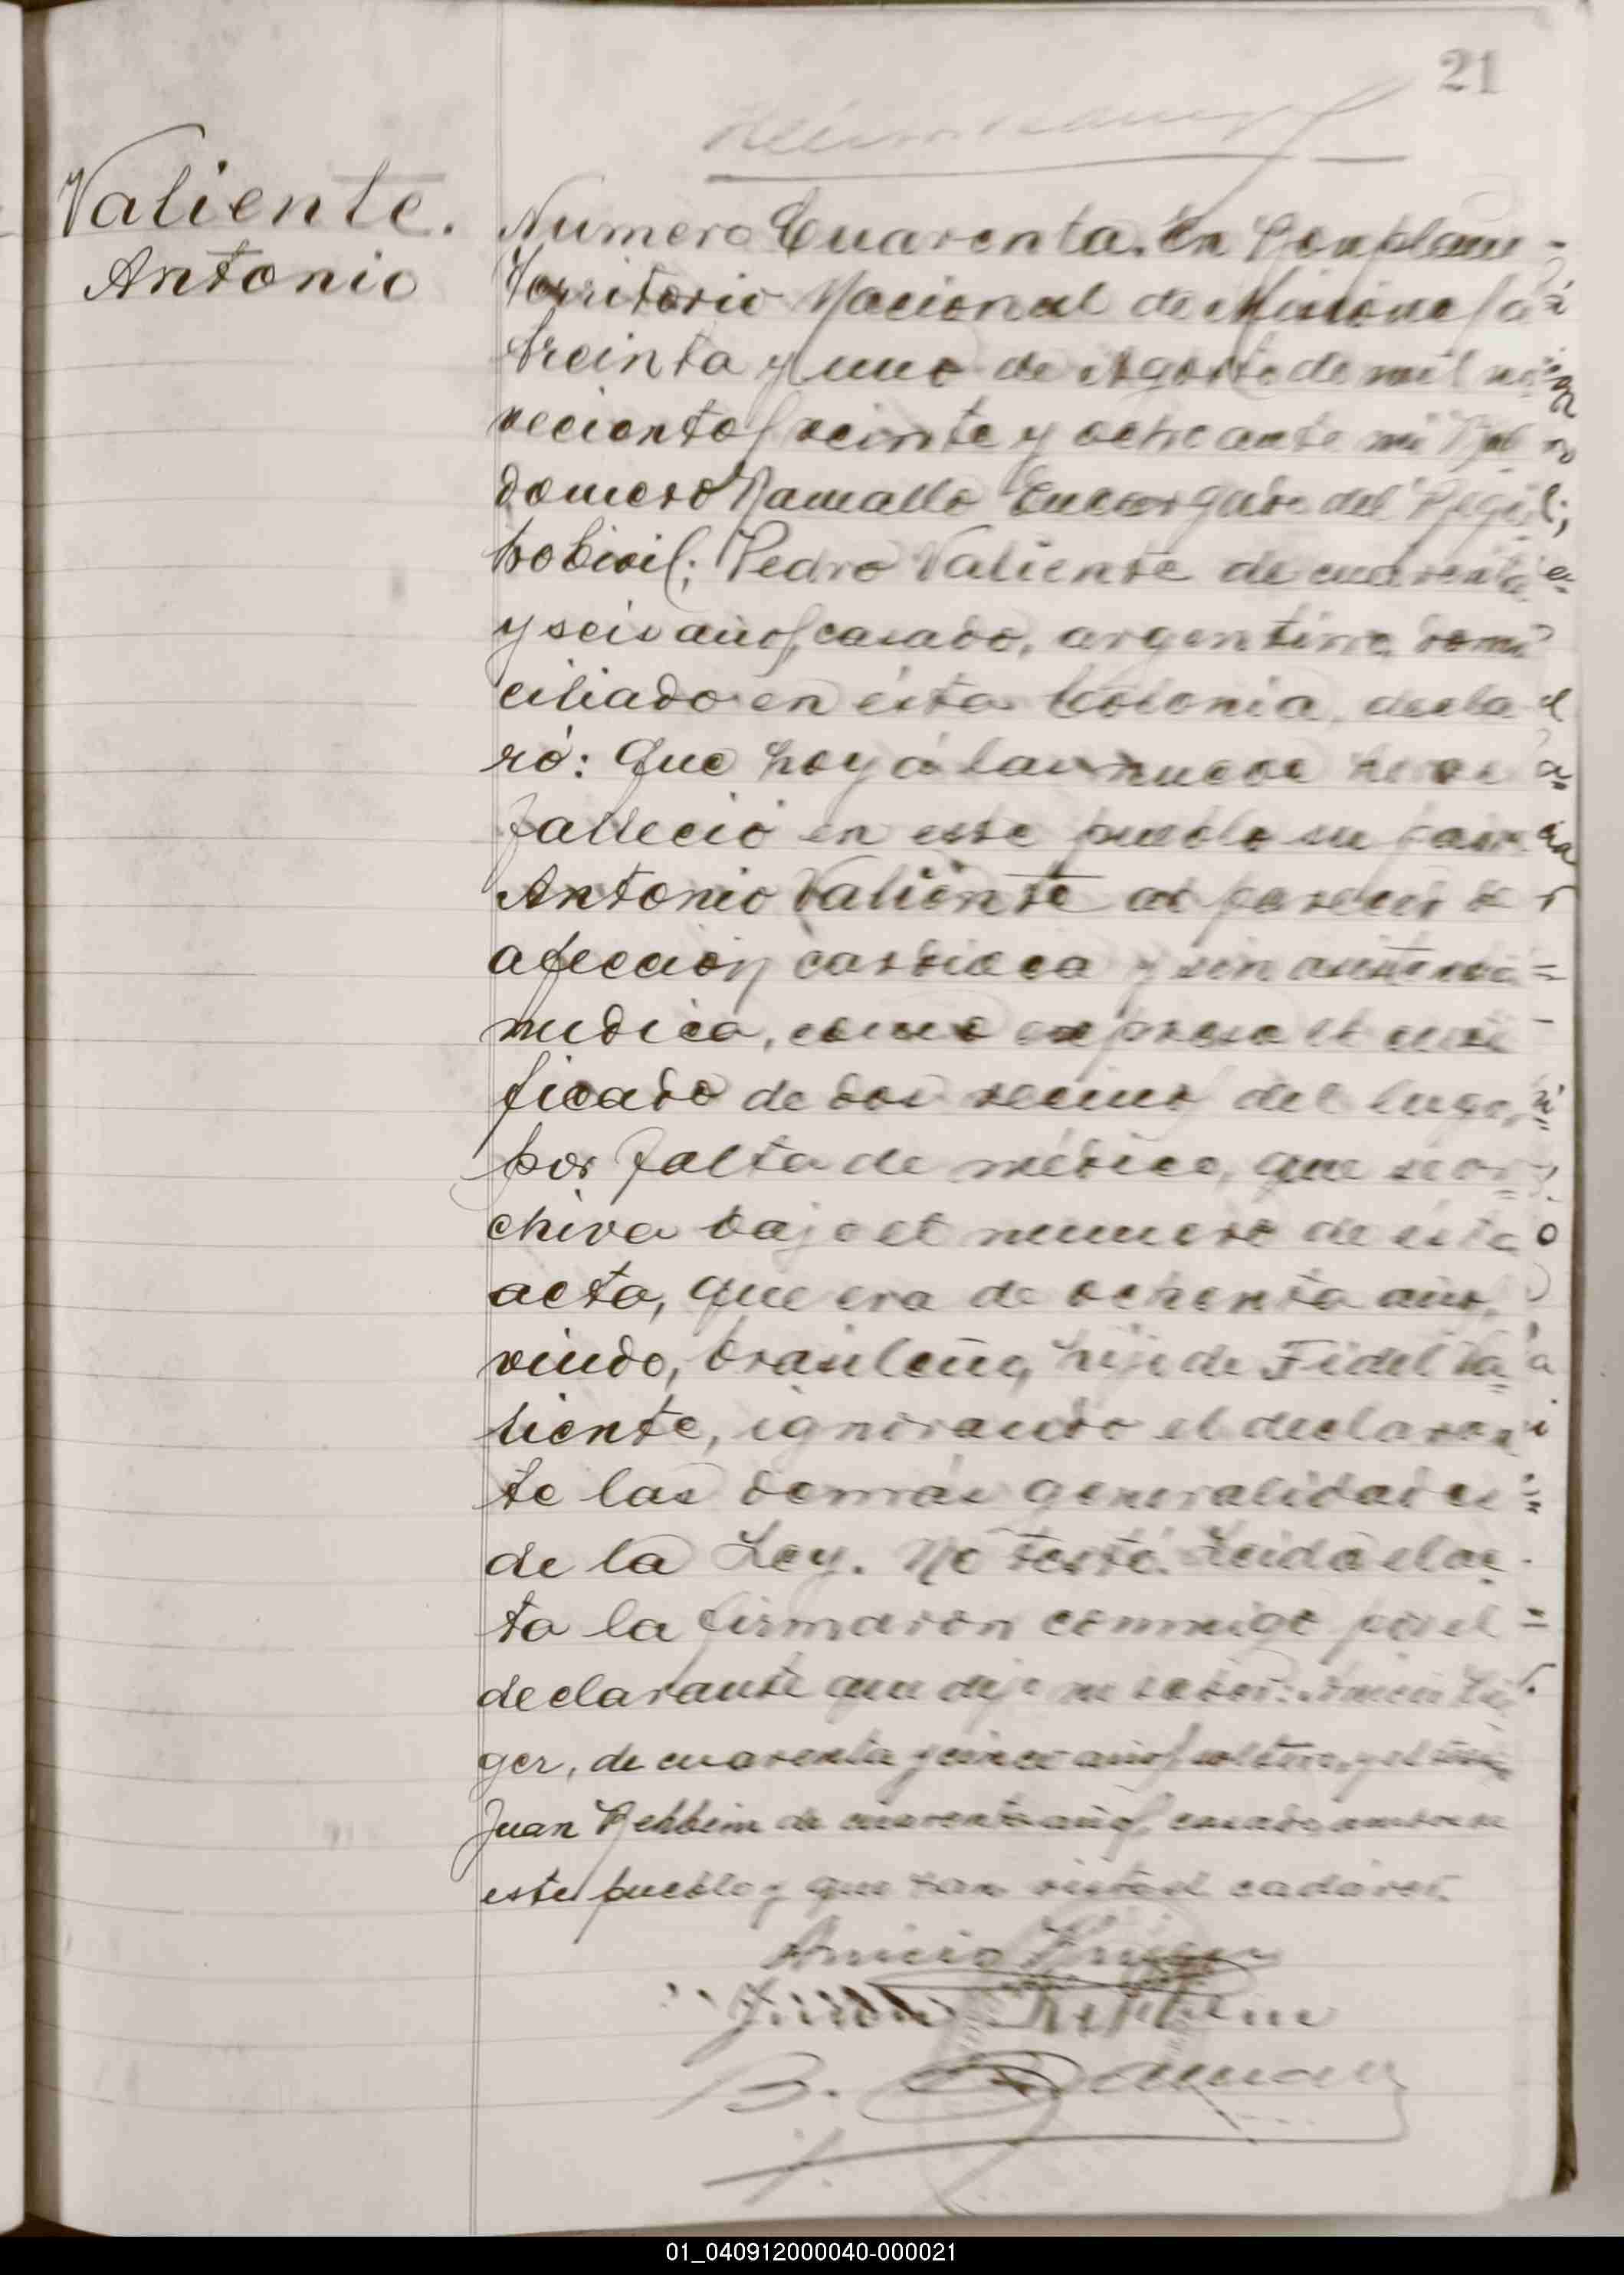 21
Valiente.
Antonio
Numero Cuarenta. En Bonpland
Territorio Nacional de Misiones á
treinta y uno de Agosto de mil no
vecientos veinte y ocho ante mi Bal
domero Ramallo Encargado del Regis
tro Civil; Pedro Valiente de cuarenta
y seis años, casado, argentino, domi
ciliado en ésta Colonia, decla
ró: Que hoy á las nueve horas
falleció en este pueblo su padre
Antonio Valiente al parecer de
afección cardiaca y sin asistencia
medica, como expresa el certi
ficado de dos vecinos del lugar,
por falta de médico, que se ar
chiva bajo el numero de ésta
acta, que era de ochenta años,
viudo, brasileño, hijo de Fidel Va
liente, ignorando el declaran
te las demás generalidades
de la Ley. No testó. Leida el ac
ta la firmaron conmigo por el
declarante que dijo no saber: Anicio
ger, de cuarenta y cinco años soltero, y el testigo
Juan Rehbein de cuarenta años, casado, ambos de
este pueblo y que han visto el cadáver.
Anicio
Juan Rehbein
B. Ramallo
01_040912000040-000021